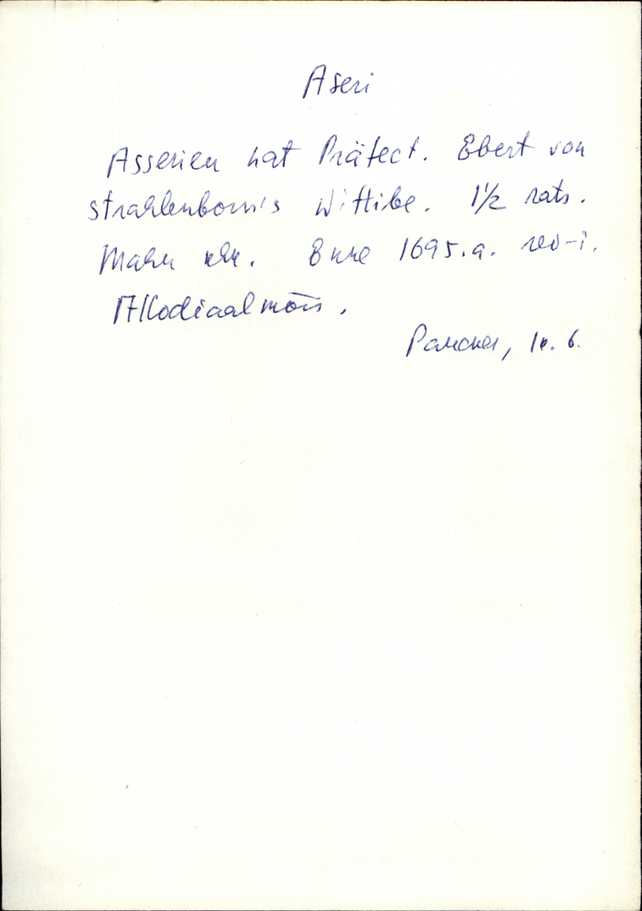 Aseri
Asserien hat Präfect. Ebert von
Strahlenborn's Wittibe. 1½ rats.
Mahn Enne 1695.a. rev-i.
Allodiaalmõis.
Paucker, lk. 6.